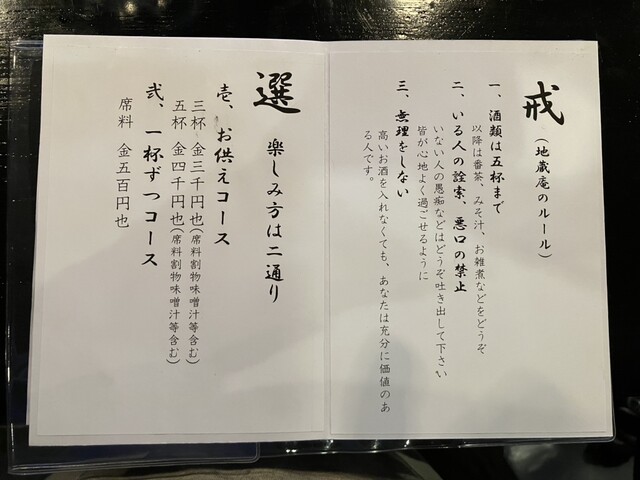 戒(地蔵庵のルール)
一、酒類は五杯まで
以降は番茶、みそ汁、お雑煮などをどうぞ
二、いる人の詮索、悪口の禁止
いない人の愚痴などはどうぞ吐き出して下さい
皆が心地よく過ごせるように
三、無理をしない
高いお酒を入れなくても、あなたは充分に価値のあ
る人です。
選 楽しみ方は二通り
壱、お供えコース
三杯 金三千円也(席料割物味噌汁等含む)
五杯 金四千円也(席料割物味噌汁等含む)
弐、一杯ずつコース
席料 金五百円也